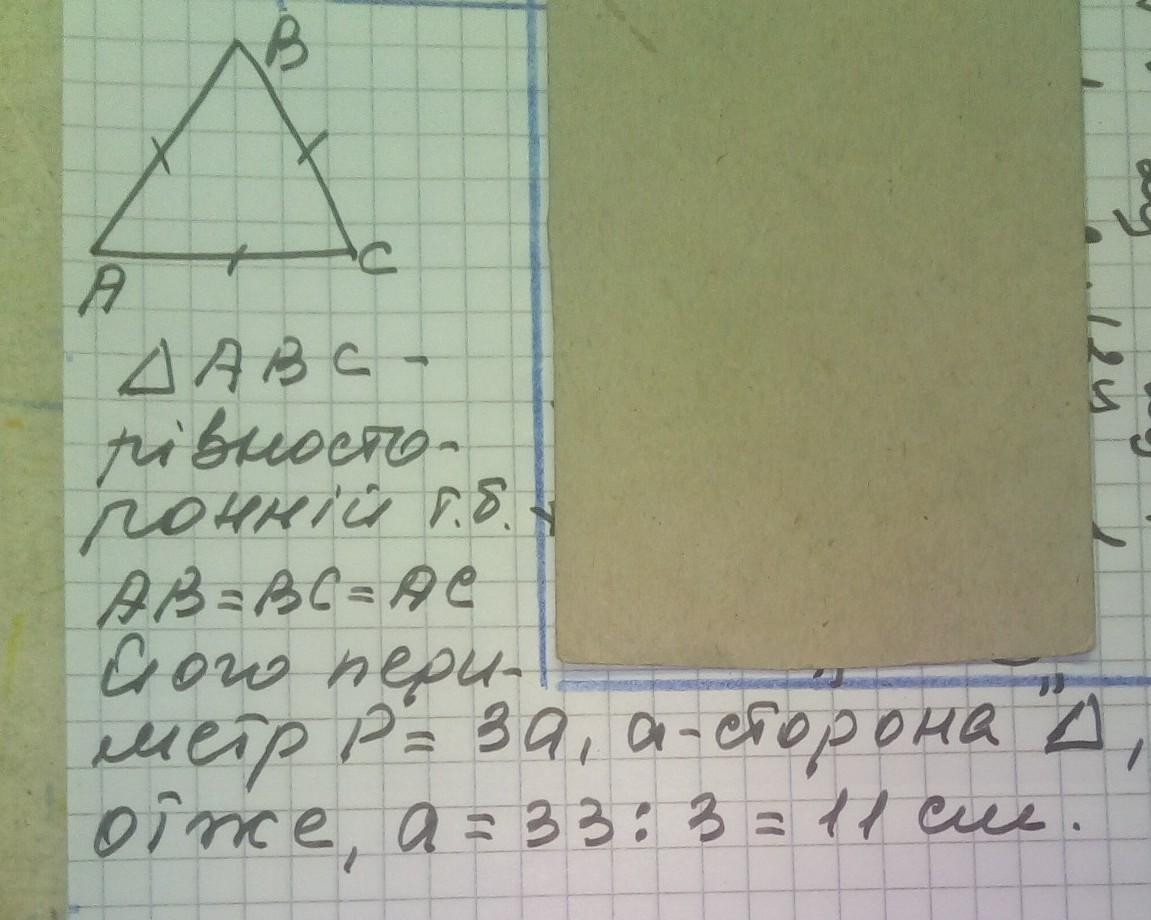 B
A
C
Δ ABC -
рівносто-
ронній т.б.
AB = BC = AC
Його пери-
метр P = 3a, a - сторона Δ,
отже, a = 33 : 3 = 11 см.